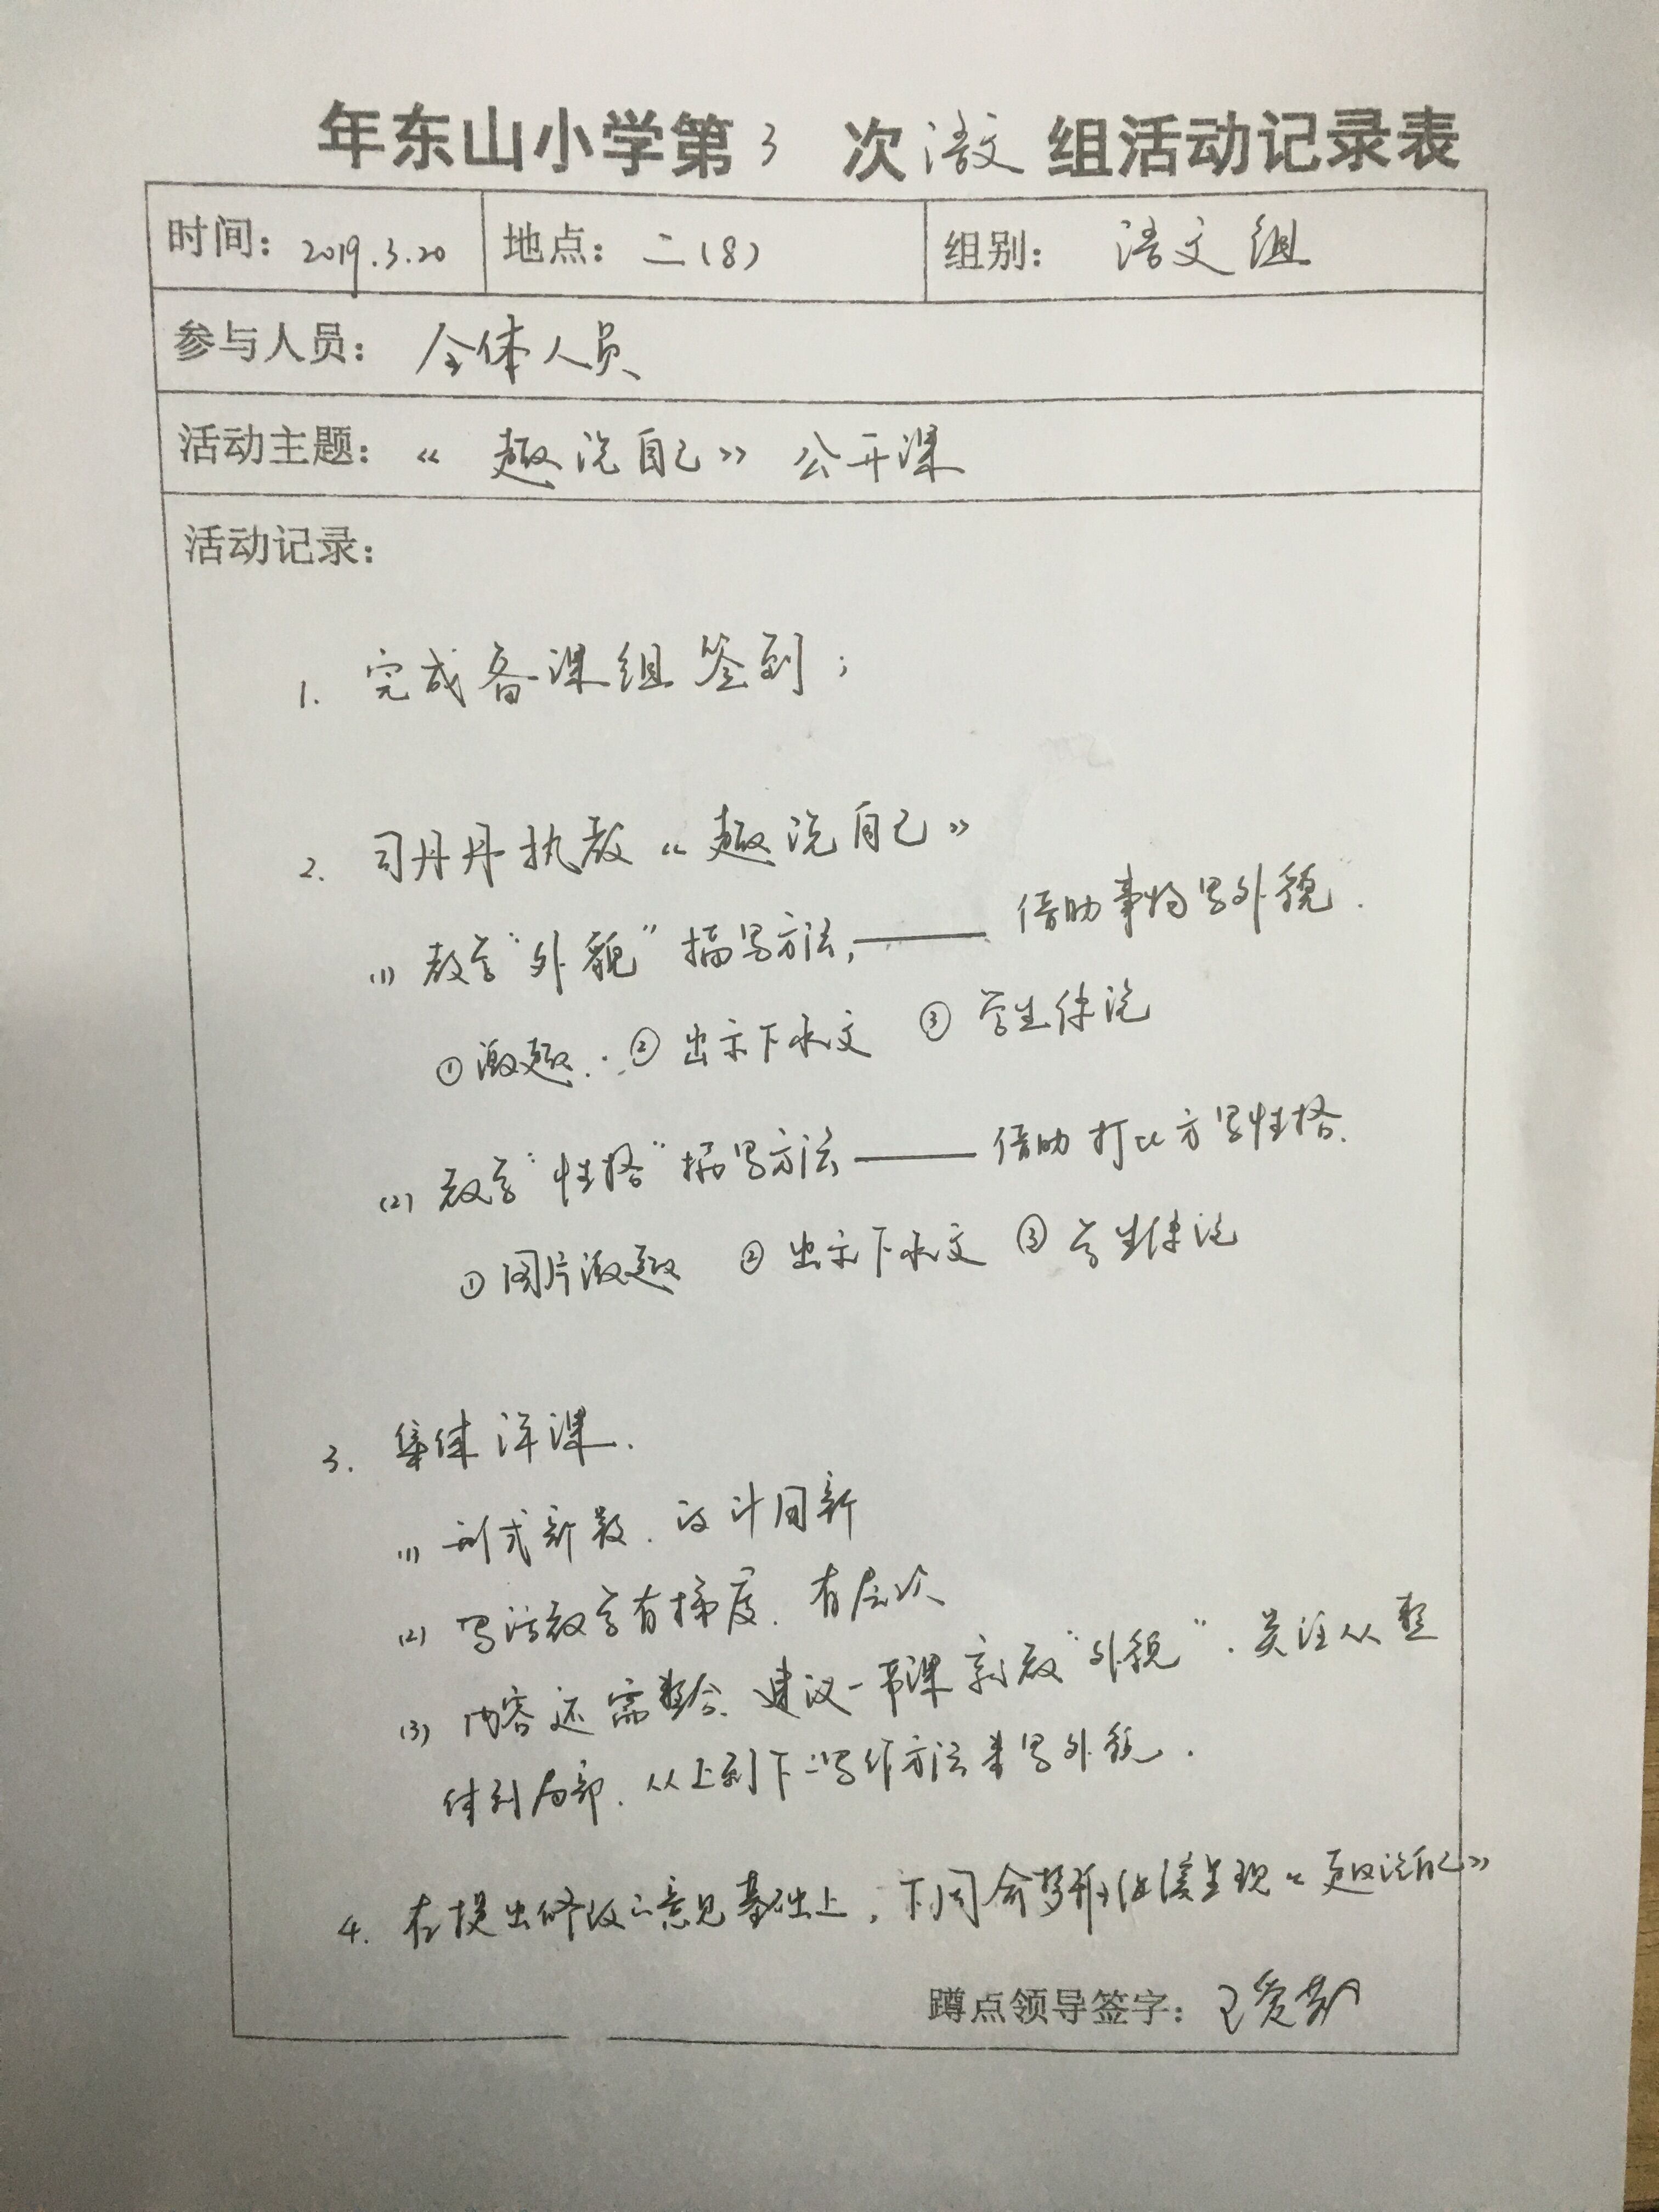 年东山小学第 3 次 语文 组活动记录表
时间：2019.3.20 地点：二（8） 组别：语文组
参与人员：全体人员
活动主题：《趣说自己》公开课
活动记录：
1. 完成备课组签到；
2. 司丹丹执教《趣说自己》
(1) 教学“外貌”描写方法，—— 借助事物写外貌.
① 激趣. ② 出示下水文 ③ 学生练说
(2) 教学“性格”描写方法 —— 借助打比方写性格.
① 图片激趣 ② 出示下水文 ③ 学生练说
3. 集体评课.
(1) 形式新颖. 设计创新
(2) 写话教学有梯度. 有层次
(3) 内容还需整合. 建议一节课教“外貌”. 关注从整
体到局部. 从上到下写作方法来写外貌.
4. 在提出修改意见基础上, 下周 继续呈现《趣说自己》
蹲点领导签字：王爱